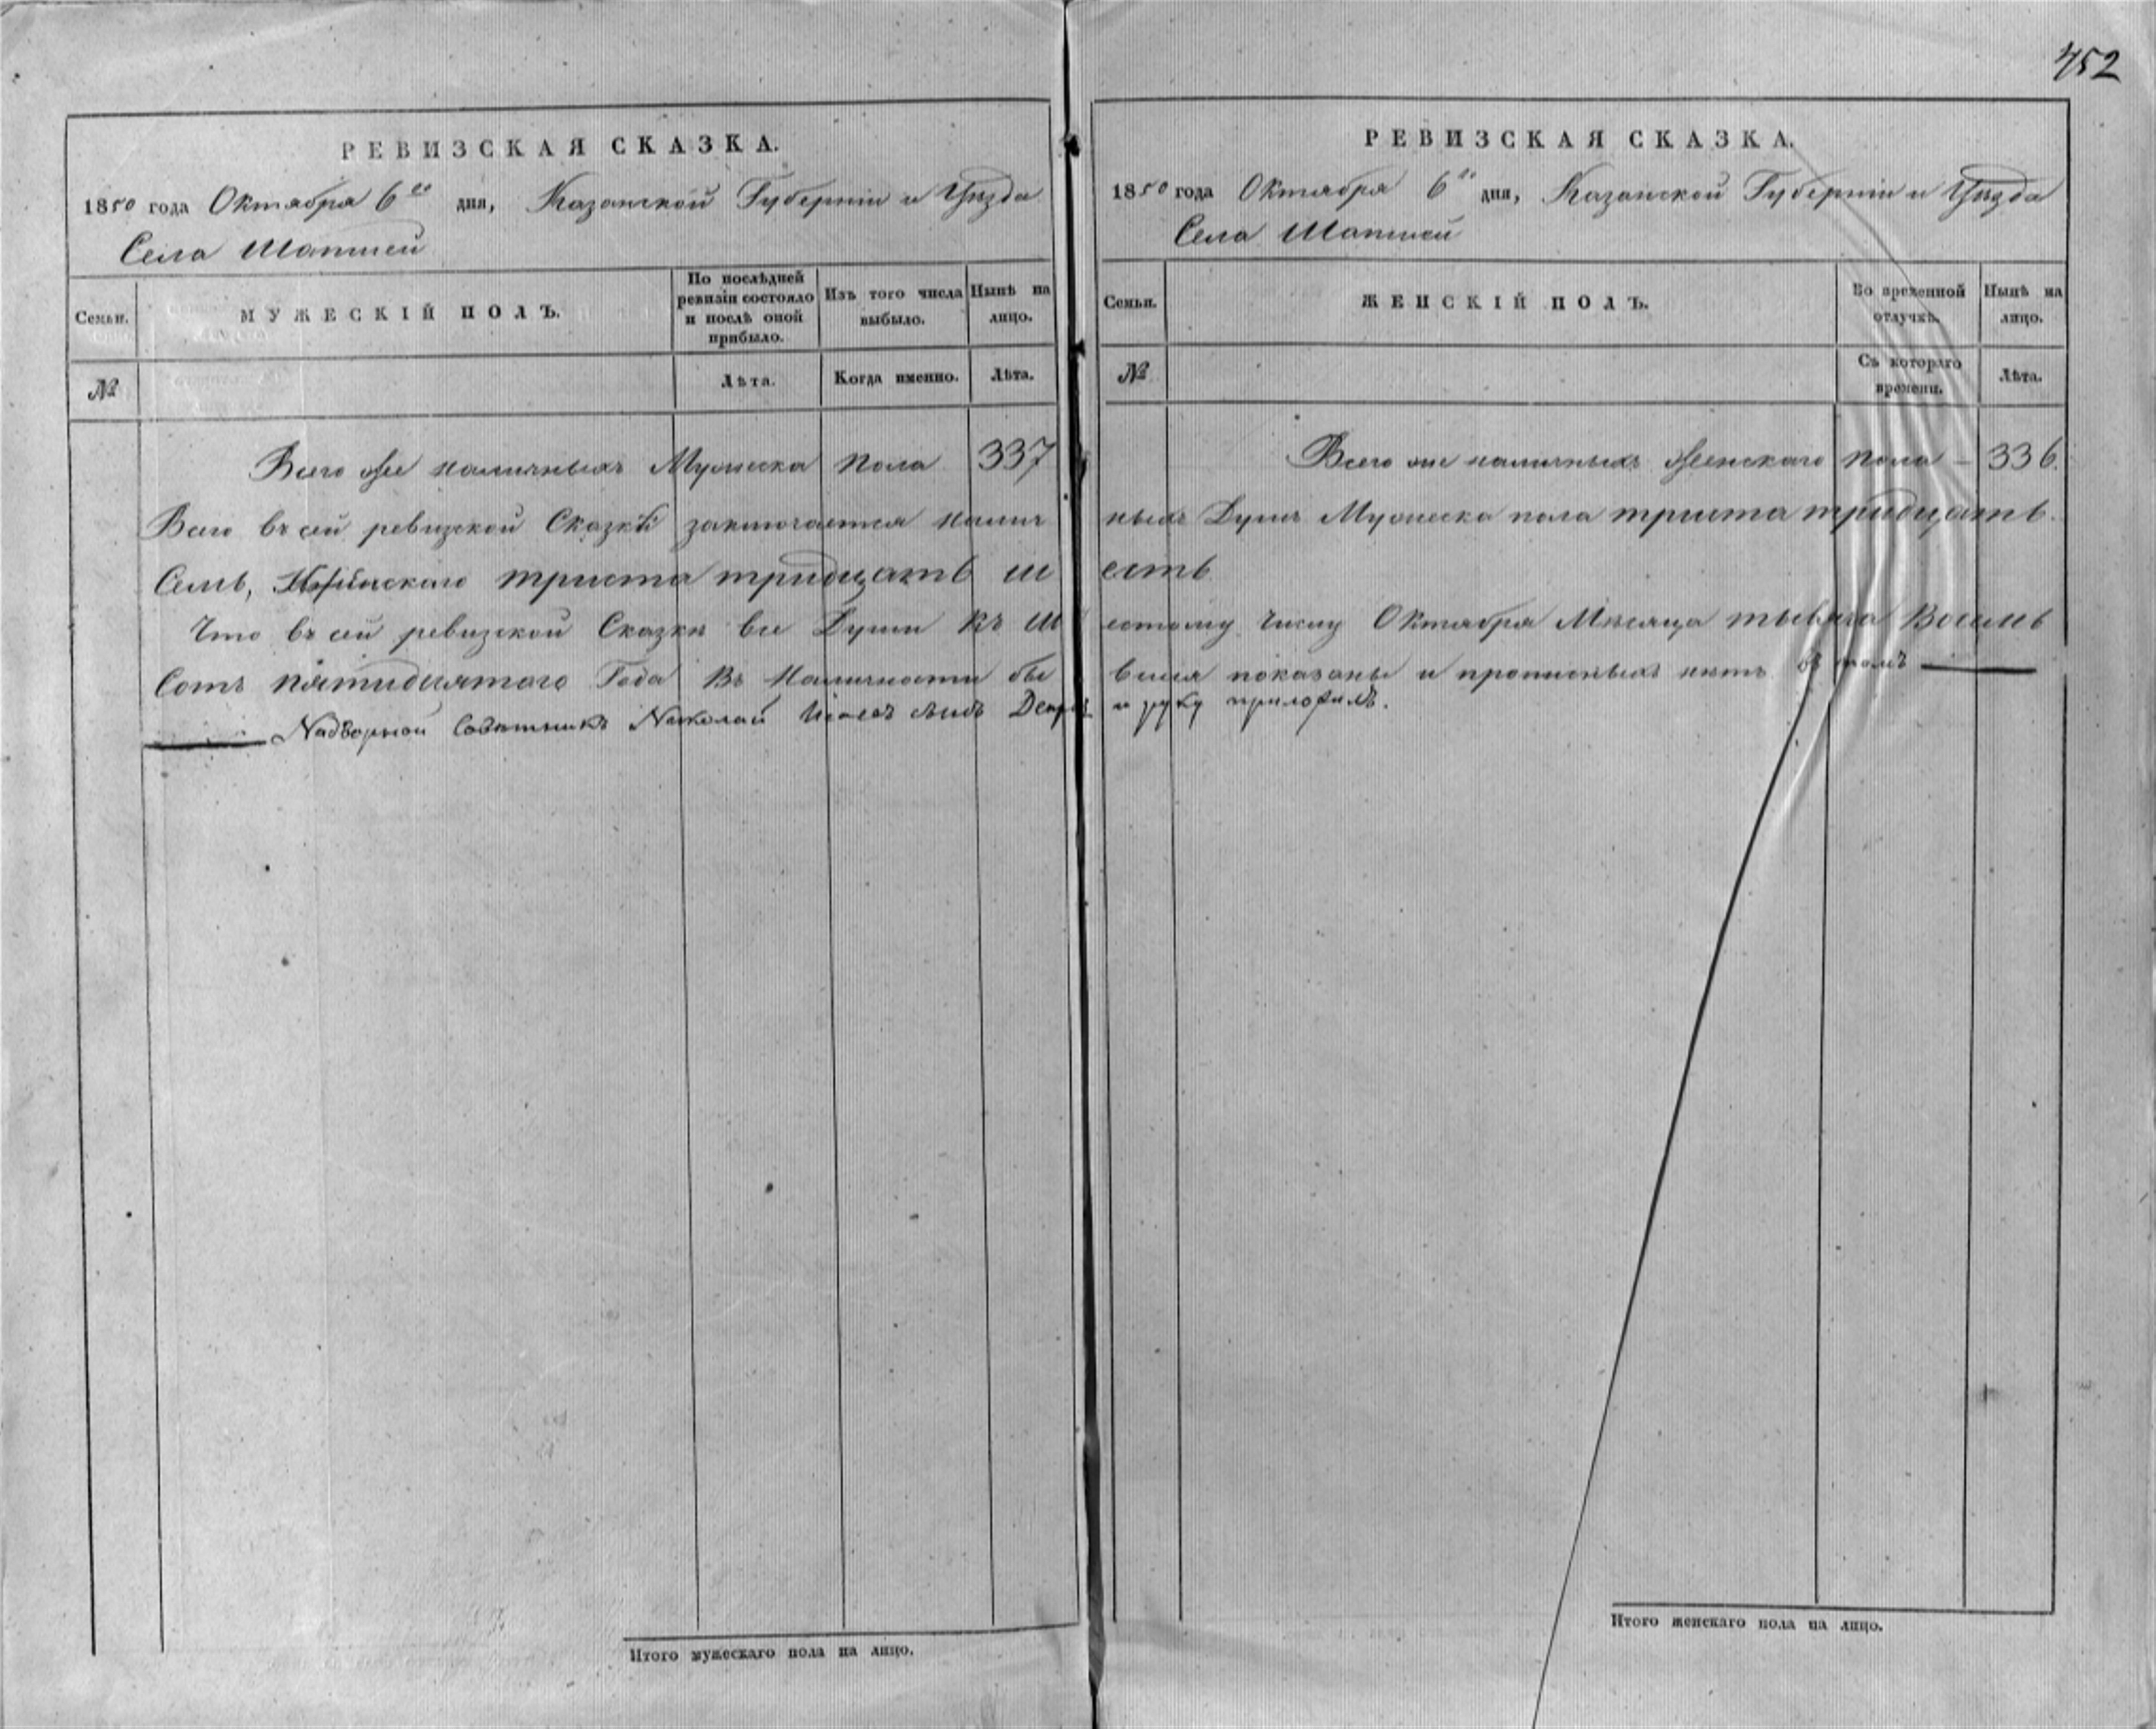 452
РЕВИЗСКАЯ СКАЗКА.
1850 года Октября 6го дня, Казанской Губерніи и Уѣзда
Села Шапшей
Семьи.
МУЖЕСКІЙ ПОЛЪ.
По послѣдней ревизіи состояло и послѣ оной прибыло.
Изъ того числа выбыло.
Нынѣ на лицо.
№
Лѣта.
Когда именно.
Лѣта.
Всего же наличныхъ Мужеска пола 337
Всего въ сей ревизской Сказкѣ заключается налич
Семь, Женскаго триста тридцать ш
Что въ сей ревизской Сказки все Души къ ш
Сотъ пятидесятаго Года въ Наличности бы
Надворной Совѣтникъ Николай сынъ
Итого мужескаго пола на лицо.
РЕВИЗСКАЯ СКАЗКА.
1850 года Октября 6го дня, Казанской Губерніи и Уѣзда
Села Шапшей
Семьи.
ЖЕНСКІЙ ПОЛЪ.
Во временной отлучкѣ.
Нынѣ на лицо.
№
Съ котораго времени.
Лѣта.
Всего же наличныхъ Женскаго пола - 336.
ныхъ Душъ Мужеска пола триста тридцать
есть
естому числу Октября Мѣсяца тысяча Восемь
вшия показаны и прописныхъ нетъ въ томъ
и руку приложилъ.
Итого женскаго пола на лицо.